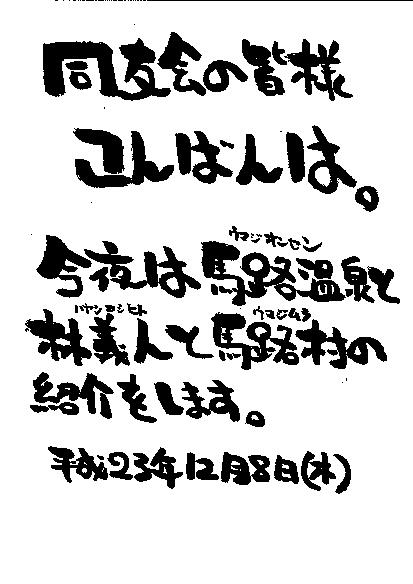 同友会の皆様
こんばんは。
ウマジオンセン
今夜は馬路温泉と
ハヤシヨシヒト ウマジムラ
林義人と馬路村の
紹介をします。
平成23年12月8日(木)